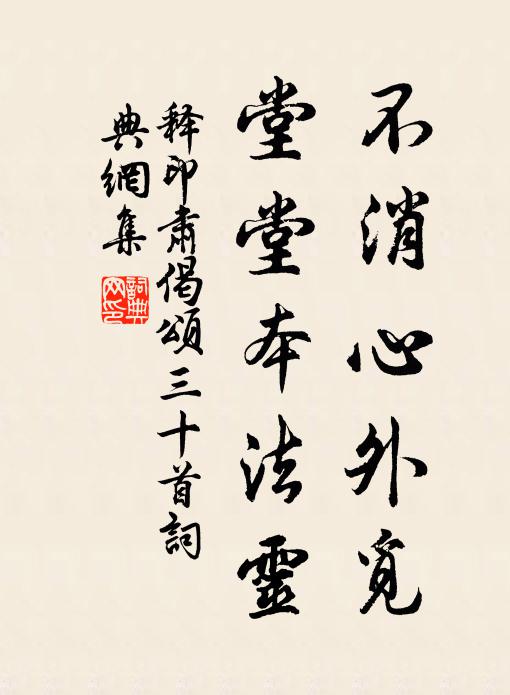 不消心外覓
堂堂本法靈
釋印肅偈頌三十首詞
典網集
詞典网印